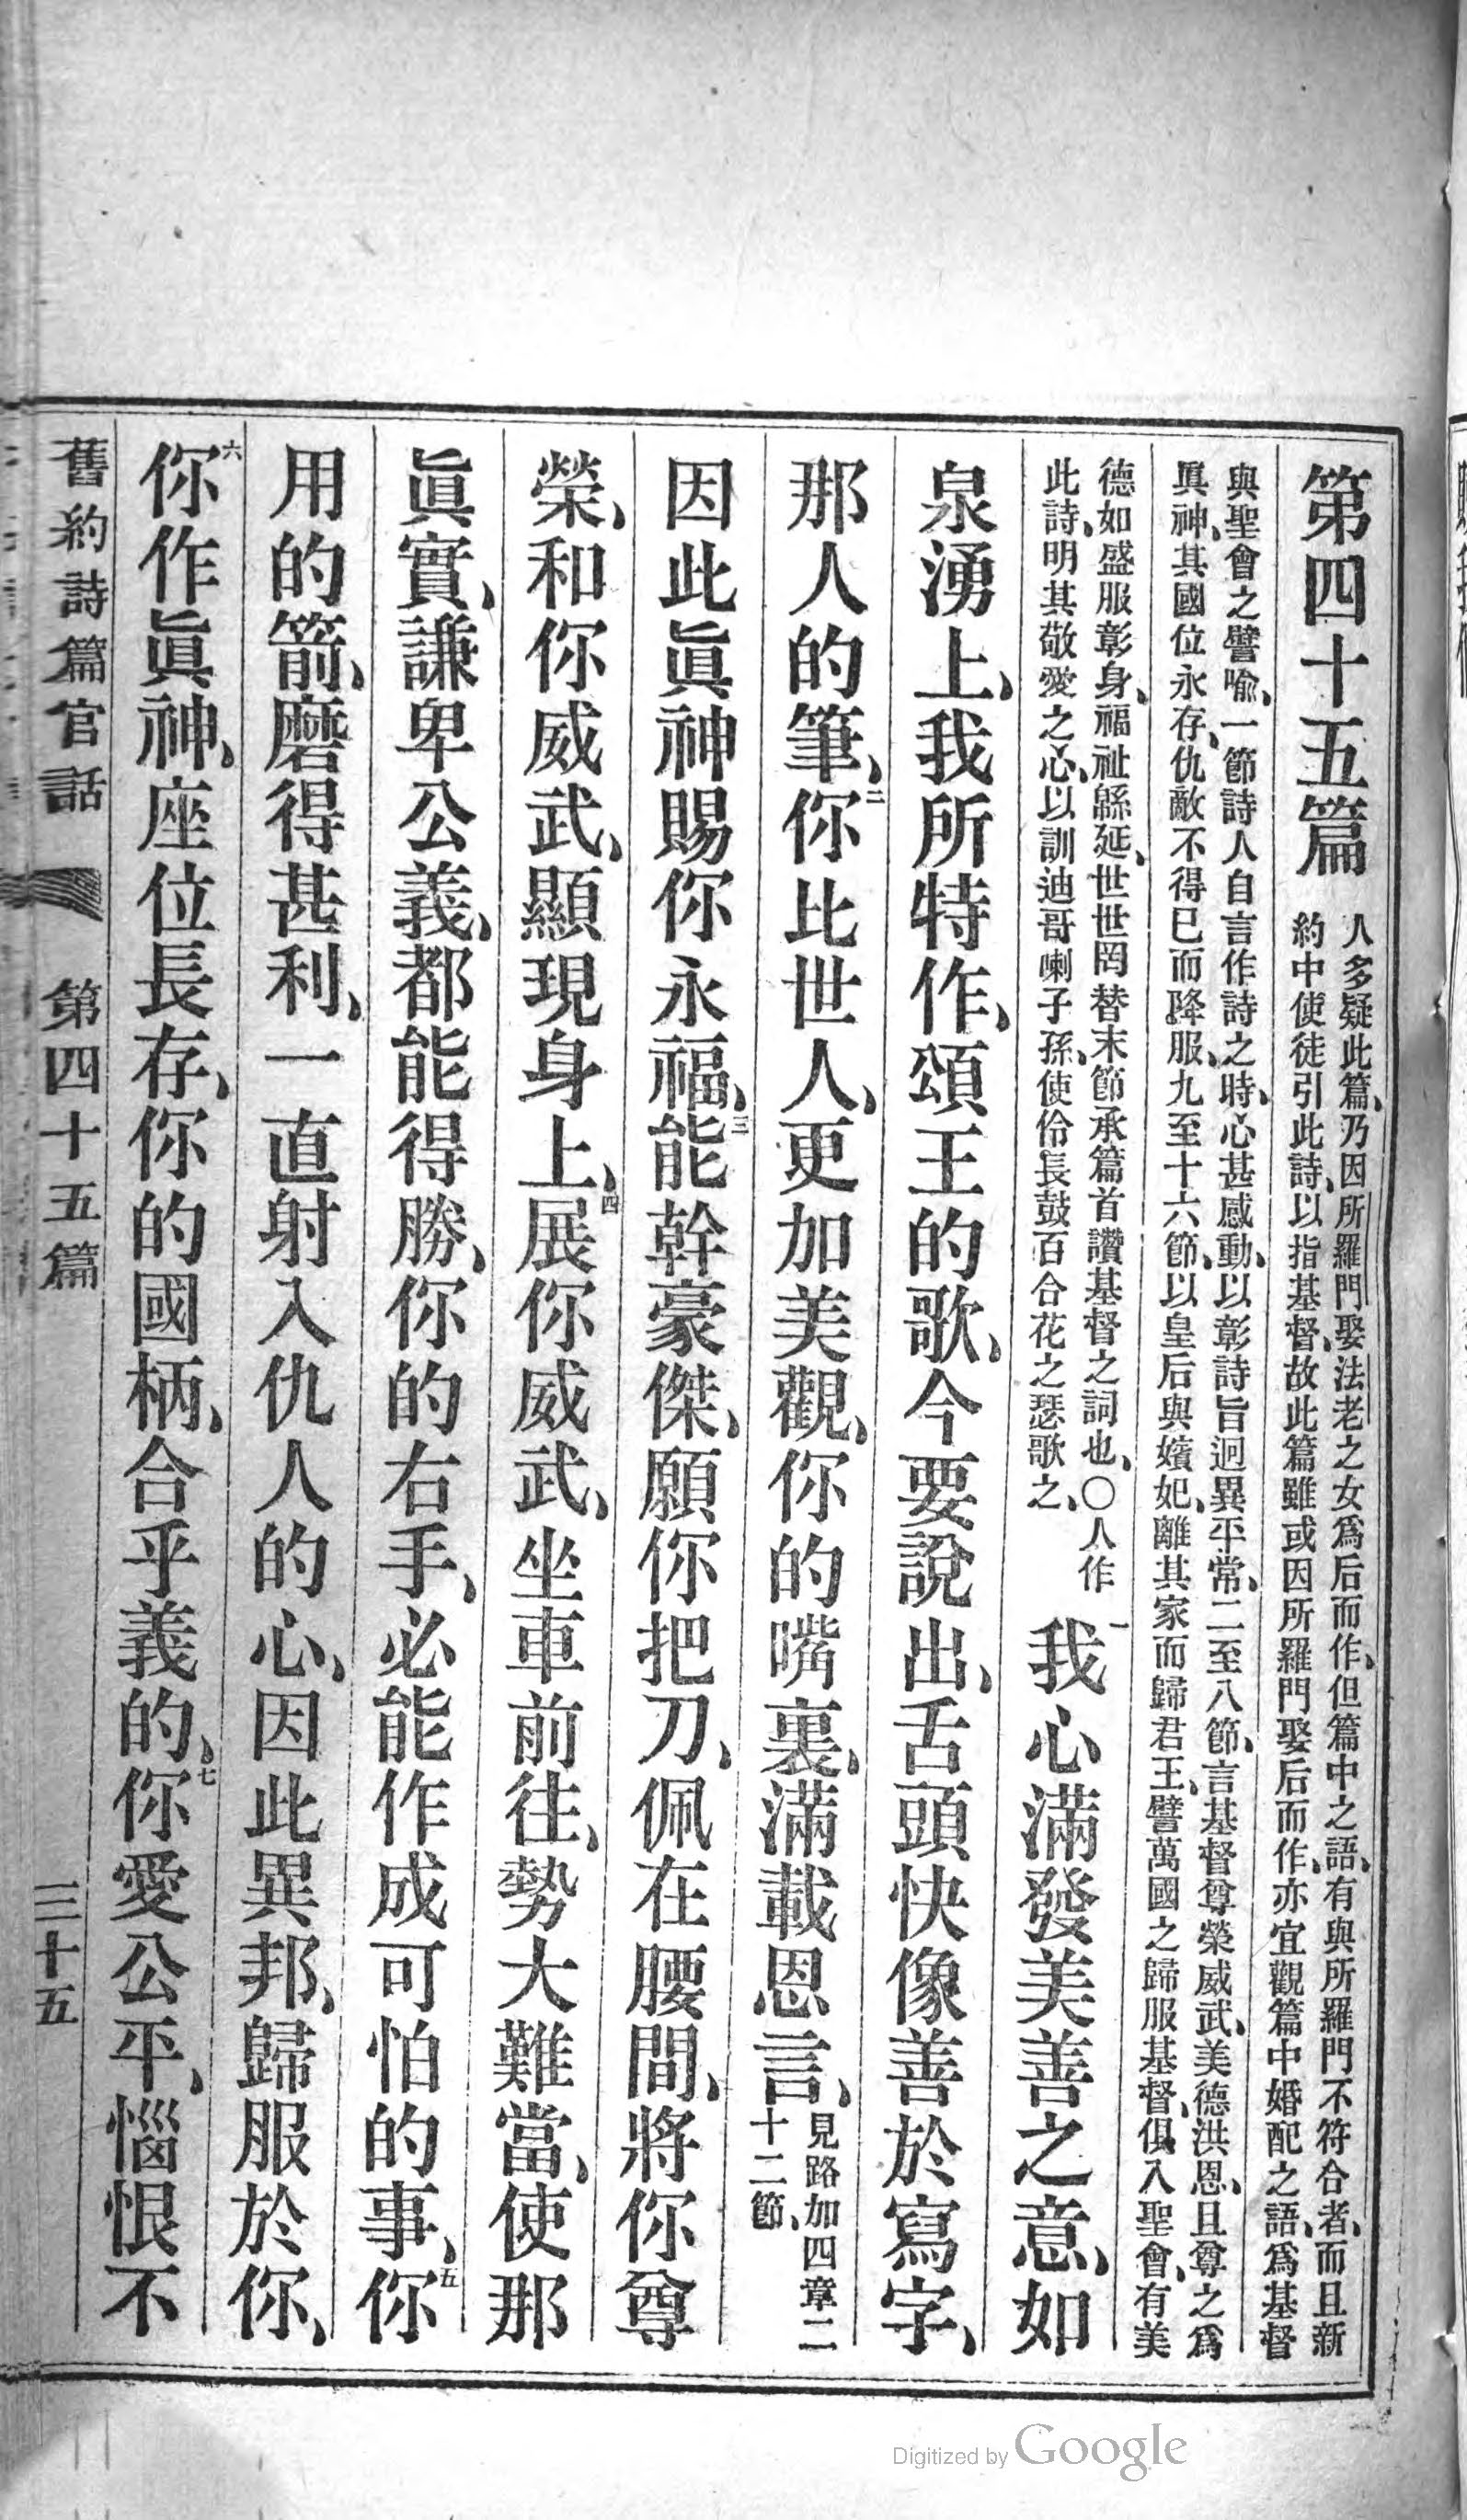 第四十五篇
人多疑此篇、乃因所羅門娶法老之女爲后而作、但篇中之語、有與所羅門不符合者、而且新
約中使徒引此詩、以指基督、故此篇雖或因所羅門娶后而作、亦宜觀篇中婚配之語、爲基督
與聖會之譬喻、一節詩人自言作詩之時、心甚感動、以彰詩旨迥異平常、二至八節、言基督尊榮威武、美德洪恩、且尊之爲
眞神、其國位永存、仇敵不得已而降服、九至十六節、以皇后與嬪妃、離其家而歸君王、譬萬國之歸服基督、俱入聖會、有美
德如盛服彰身、福祉緜延、世世罔替、末節承篇首讚基督之詞也、〇人作
此詩、明其敬愛之心、以訓迪哥喇子孫、使伶長鼓百合花之瑟歌之、
一我心滿發美善之意、如
泉湧上、我所特作、頌王的歌、今要說出、舌頭快像善於寫字、
那人的筆、二你比世人、更加美觀、你的嘴裏、滿載恩言、見路加四章二十二節、
因此眞神賜你永福、三能幹豪傑、願你把刀、佩在腰間、將你尊
榮、和你威武、顯現身上、四展你威武、坐車前往、勢大難當、使那
眞實、謙卑公義、都能得勝、你的右手、必能作成可怕的事、五你
用的箭、磨得甚利、一直射入仇人的心、因此異邦、歸服於你、
六你作眞神、座位長存、你的國柄、合乎義的、七你愛公平、惱恨不
舊約詩篇官話 第四十五篇 三十五
Digitized by Google